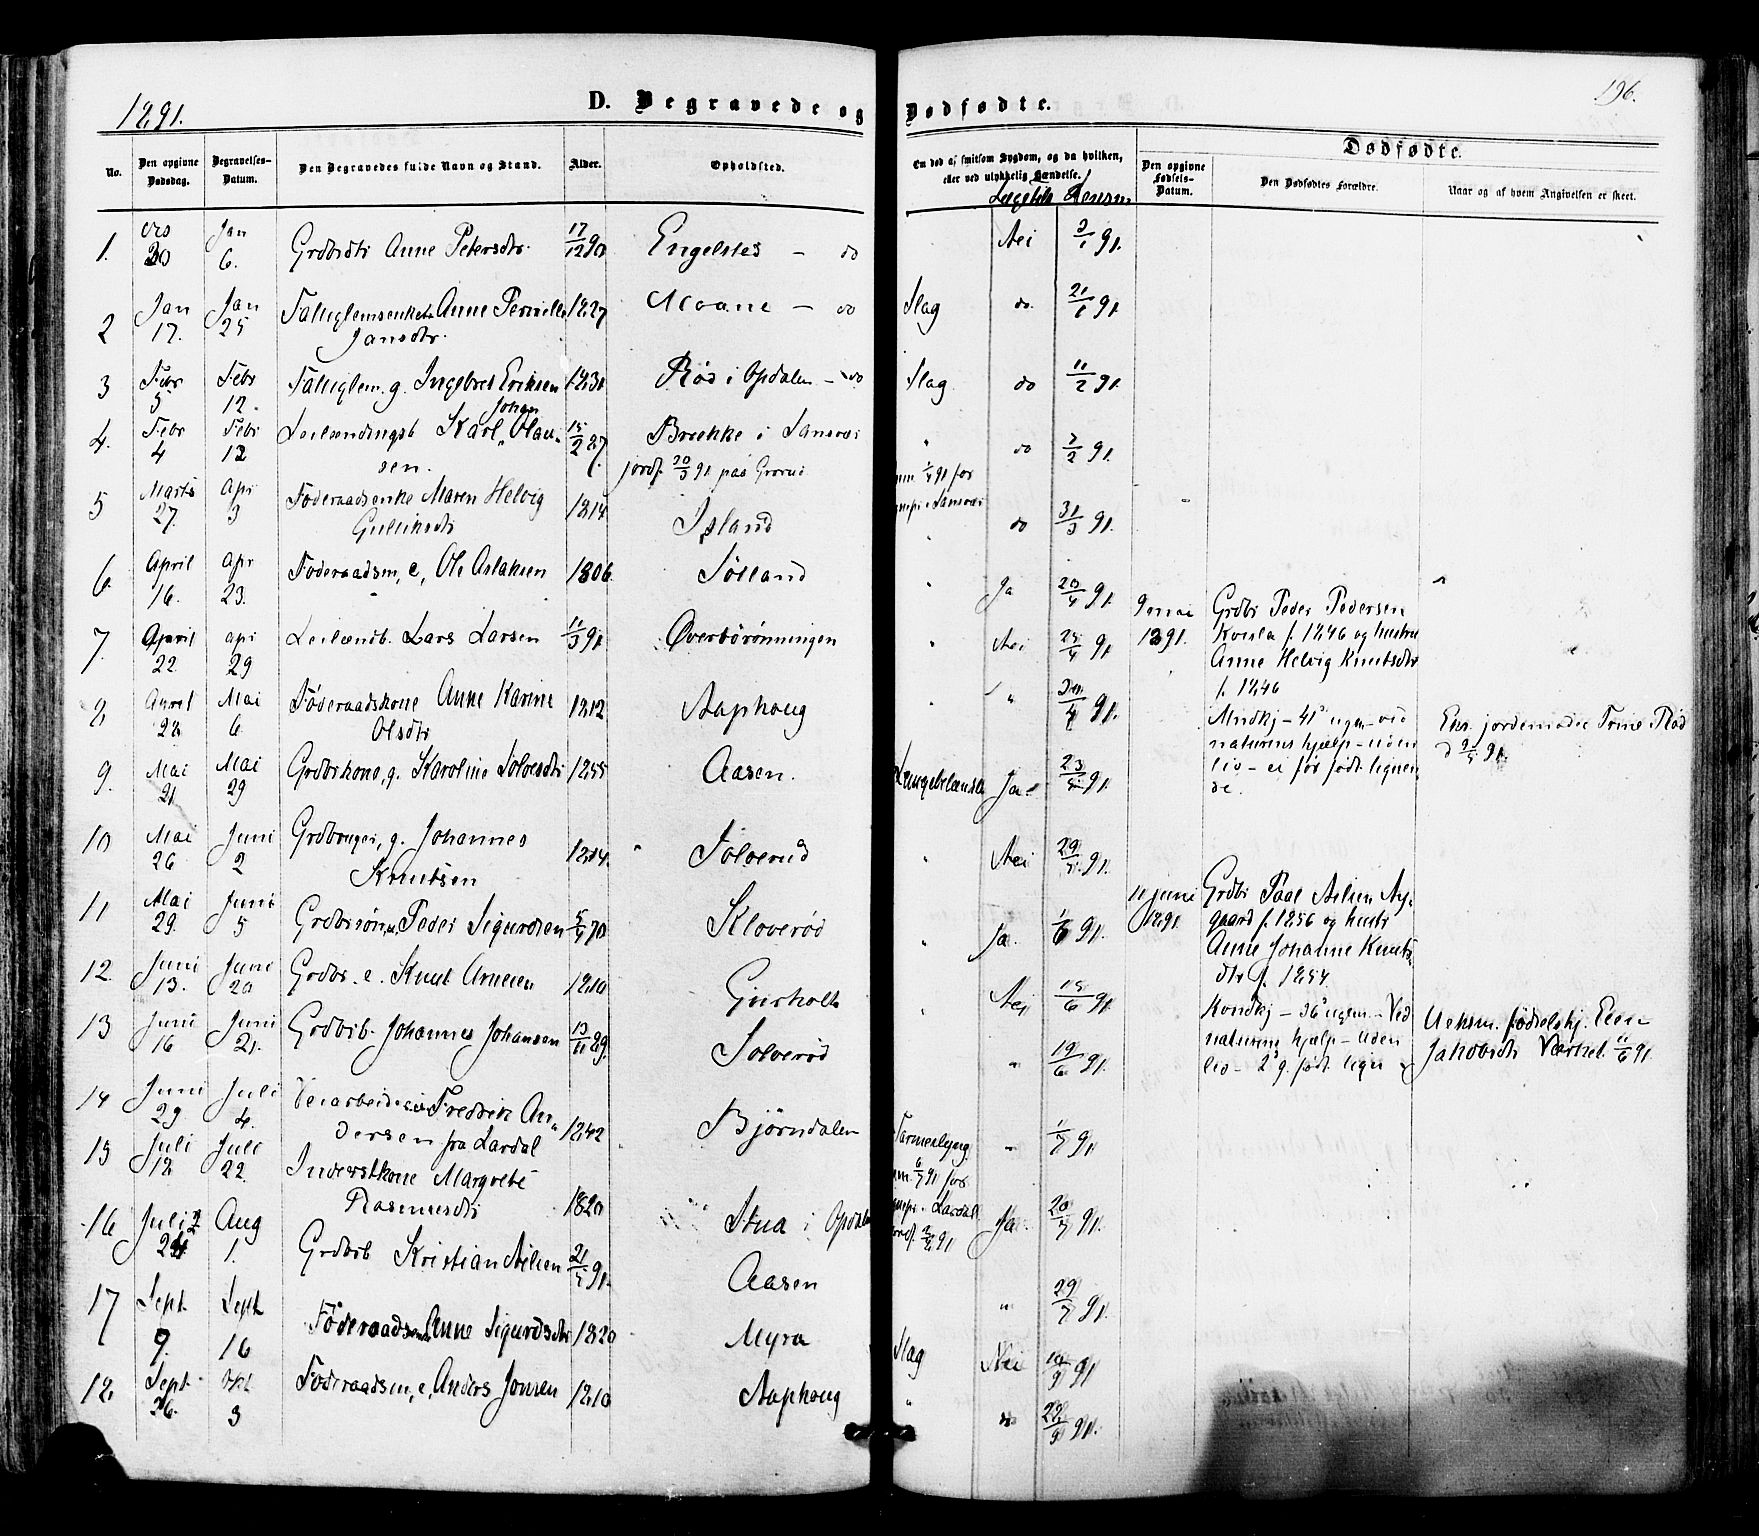 1891.
D. Begravede og Dødfødte.
196.
No.
Den opgivne Dødsdag.
Begravelses-Datum.
Den Begravedes fulde Navn og Stand.
Alder.
Opholdsted.
Om død af smitsom Sygdom, og da hvilken,
eller ved ulykkelig Hændelse.
Dødfødte.
Den opgivne Fødsels-Datum.
Den Dødfødtes Forældre.
Naar og af hvem Angivelsen er skeet.
1. 30 Jan 6. Grdbrdtr Anne Petersdtr. 17/12 90 Engelstad - do Nei 3/1 91.
2 Jan 17. Jan 25 Anne Pernille 1827 Moane - do Slag do. 21/1 91.
Jansdtr.
3 Febr 5 Febr 12. g. Ingebret Eriksen 1831 Rød i Opdalen - do Slag. do 11/2 91.
Johan
4. Febr 4 Febr 12 Leilændingsb Karl Olau- 15/2 87. Brække i Sandsvær " do 7/2 91.
sen. jordf. 20/3 91 paa
5 Marts 27. Apr 3 Føderaadsenke Maren Helvig 1814 Island " do 31/3 91.
Gulliksdtr
6. April 16. Apr 23. Føderaadsm, e, Ole Aslaksen 1806. Sølland " Ja 20/4 91.
7. April 22 apr 29 Leilændb. Lars Larsen 11/3 91 Øverbørønningen " Nei 25/4 91
8 April 28 Mai 6 Føderaadskone Anne Karine 1812 Aaphoug " " 30/4 91.
Olsdtr
9. Mai 21 Mai 29 Grdbrkone, g. Karoline Solvesdtr 1855 Aasen. Ja 23/5 91.
10 Mai 26 Juni 2 Grdbruger, g. Johannes 1814. Solverud " Nei 29/5 91.
Knutsen
11, Mai 29. Juni 5 Grdbrsøn, Peder Sigurdsen 5/4 70 Kloverød " Ja. 1/6 91.
12. Juni 13. Juni 20 Grdbr. e. Knut Arnesen 1810 " Nei 15/6 91.
13 Juni 16 Juni 21. Grdbrb. Johannes Johansen 13/11 89. Solverød " 19/6 91.
14 Juni 29. Juli 4. Veiarbeider Fredrik An- 1842 Bjørndalen " 1/7 91.
dersen fra Lardal
15 Juli 12 Juli 22. Inderstkone Margrete 1820 Stua i Opdalen Ja. 20/7 91.
Rasmusdtr
16 Juli 24 Aug 1. Grdbrb Kristian Nilsen 21/5 91. Aasen " 29/7 91.
17 Sept 9. Sept 16 Anne Sigurdsdtr 1820 Myra Slag Nei 10/9 91
18. Sept 26. Okt 3 Føderaadsm, e, Anders Jonsen 1810 Aaphoug " " 29/9 91.
9 mai
1891.
Grdbr Peder Pedersen
f. 1846 og hustru
Anne Helvig Knutsdtr
f. 1846
- 41 ugen - ved
naturens hjælp - uden
liv - ei før født lignen-
de.
Eks. jordemoder Trine Rød
d 9/5 91.
11 juni
1891.
Grdbr Paal Nilsen Ny-
gaard f. 1856 og hustr
Anne Johanne Knuts-
dtr f. 1854
- 36 ugen. - Ved
naturens hjælp - uden
liv - 2 g. født lign
Ueksm. fødselshj. Elen
Jakobsdtr 11/6 91